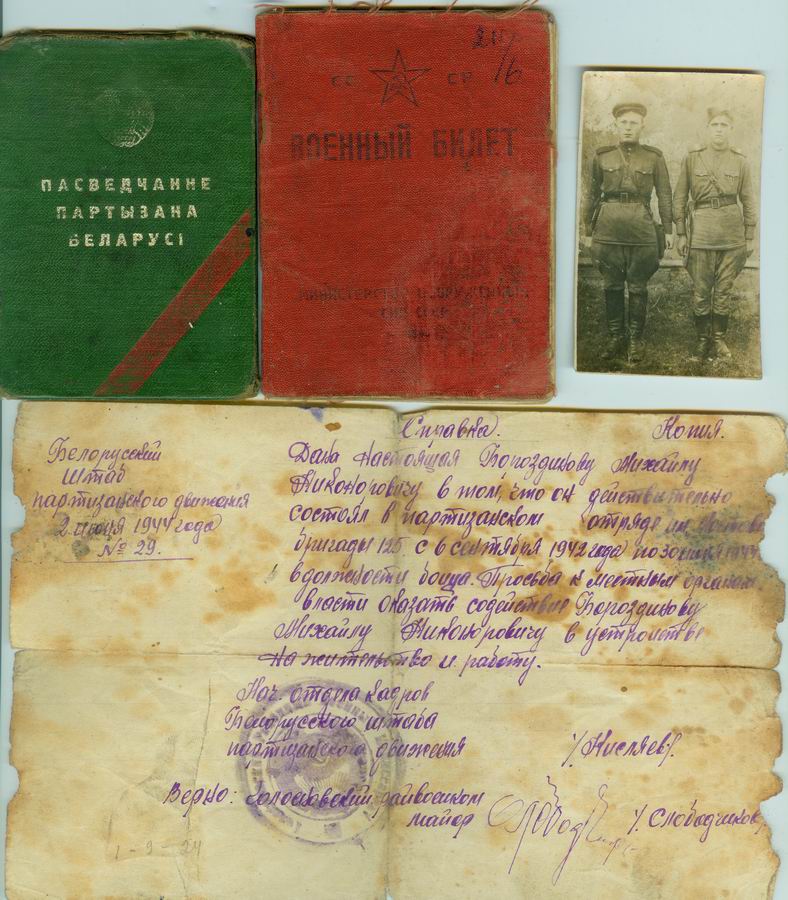 ПАСВЕДЧАННЕ
ПАРТЫЗАНА
БЕЛАРУСІ
СС СР
ВОЕННЫЙ БИЛЕТ
МИНИСТЕРСТВО ВООРУЖЕННЫХ
СИЛ СССР
Белорусский
штаб
партизанского движения
2 июля 1944 года
№ 29.
Справка. Копия.
Дана настоящая Бороздикову Михайлу
Никоноровичу в том, что он действительно
состоял в партизанском отряде им.
бригады 125 с 6 сентября 1942 года по
в должности бойца. Просьба к местным органам
власти оказать содействие Бороздикову
Михайлу Никоноровичу в устройстве
на жительство и работу.
Нач. отдела кадров
Белорусского штаба
партизанского движения
Верно:
майор /Слободчиков/